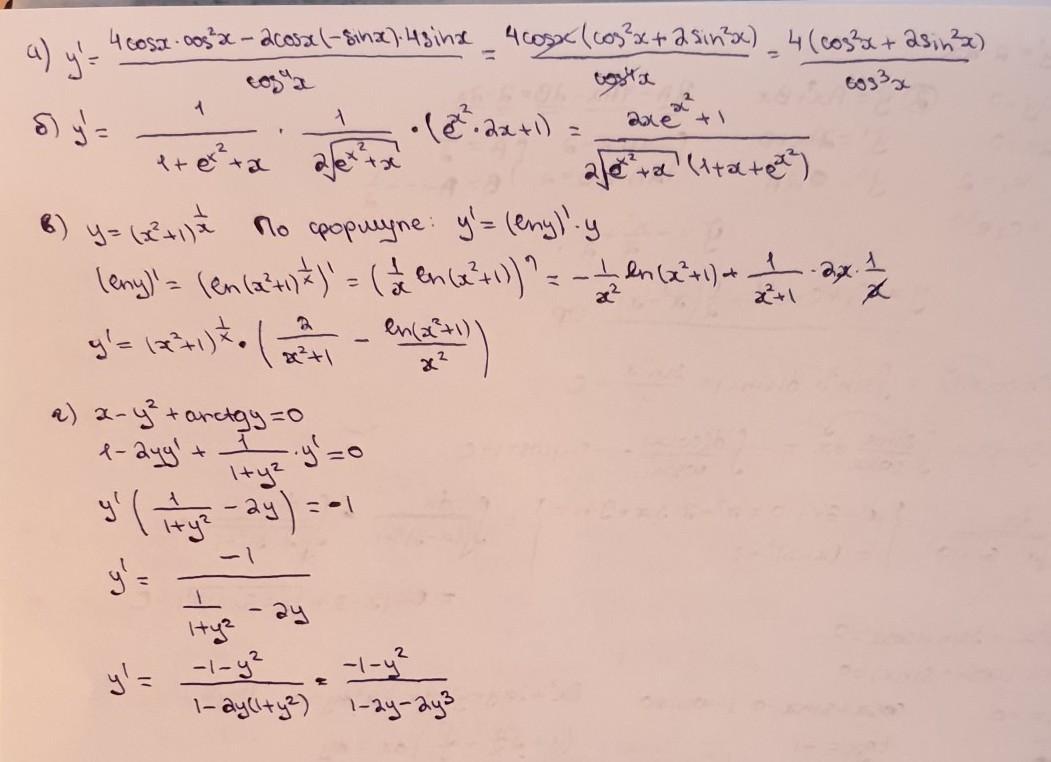 а) y' = (4cosx·cos²x − 2cosx(−sinx)·4sinx)/cos⁴x = 4cosx(cos²x + 2sin²x)/cos⁴x = 4(cos²x + 2sin²x)/cos³x
б) y' = 1/(1+e^(x²)+x) · 1/(2√(e^(x²)+x)) · (e^(x²)·2x+1) = (2xe^(x²)+1)/(2√(e^(x²)+x) (1+x+e^(x²)))
в) y = (x²+1)^(1/x) По формуле: y' = (lny)'·y
(lny)' = (ln(x²+1)^(1/x))' = (1/x ln(x²+1))' = −1/x² ln(x²+1) + 1/(x²+1) · 2x · 1/x
y' = (x²+1)^(1/x) · (2/(x²+1) − ln(x²+1)/x²)
г) x − y² + arctgy = 0
1 − 2yy' + 1/(1+y²) · y' = 0
y' (1/(1+y²) − 2y) = −1
y' = −1/(1/(1+y²) − 2y)
y' = (−1−y²)/(1−2y(1+y²)) = (−1−y²)/(1−2y−2y³)